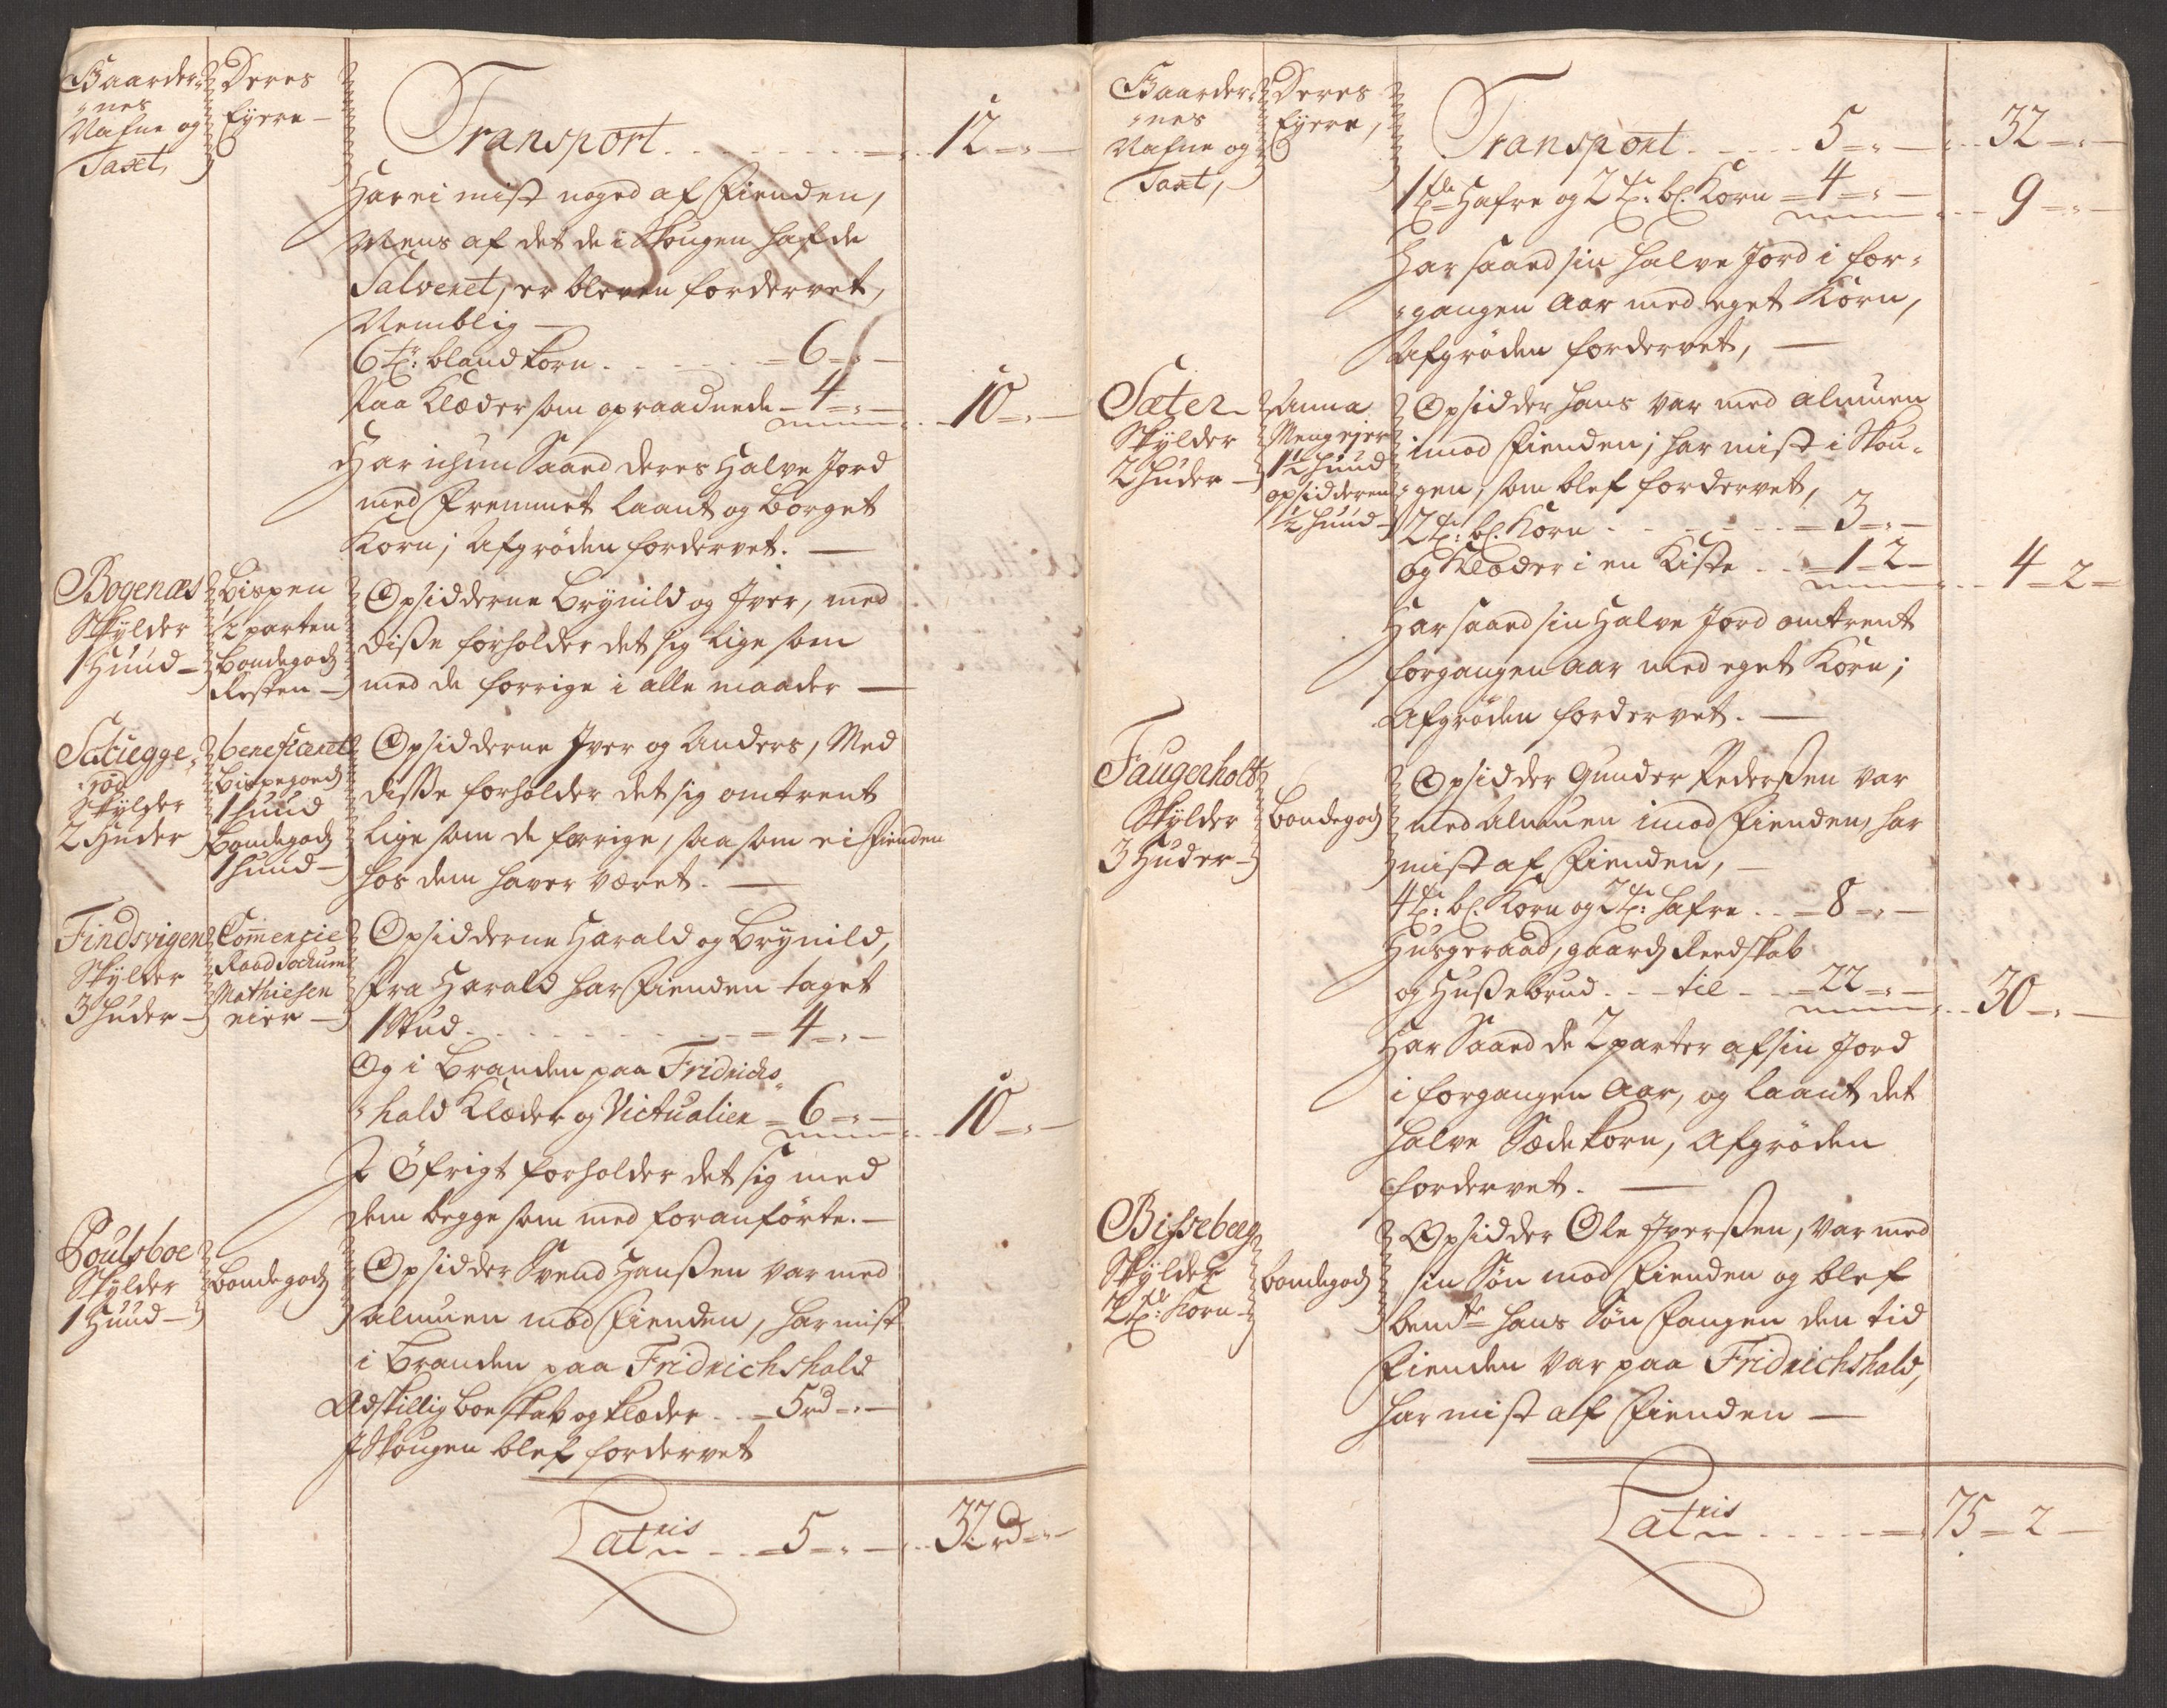 Gaarder-
nes
Nafne og
Taxt,
Deres
Eyere
Transport 12
Har ei mist noged af Fienden,
Mens af det de i Skougen hafde
Salveret, er bleven fordervet,
Nemblig
6 tr: bland korn 6
Paa Klæder som opraadnede 4 10
Har ichun Saaed deres Halve Jord
med Fremmet laant og borget
Korn; Afgrøden fordervet.
Bogenæs
Skylder
1 Huud
Bispen
½ parten
bondegods
Resten
Opsidderne Brynild og Iver, med
disse forholder det sig lige som
med de forrige i alle maader
Skylder
2 Huder
beneficeret
bispegoeds
1 huud
bondegods
1 huud
Opsidderne Iver og Anders, Med
disse forholder det sig omtrent
lige som de forrige, saa som ei Fienden
hos dem haver været.
Findsvigen
Skylder
3 Huder
Commercie
Raad Jochum
Mathiesen
eier
Opsidderne Harald og Brynild,
Fra Harald har Fienden taget
1 Stud 4
Og i Branden paa Fridrichs-
hald Klæder og Victualier 6 10
I Øfrigt forholder det sig med
dem begge som med foranførte.
Poulsboe
Skylder
1 Huud
bondegods
Opsidder Svend Hanssen var med
Almuen mod Fienden, har mist
i Branden paa Fridrichshald
Adskillig boeskab og klæder 5 rd
I Skougen blef fordervet
Lateris 5 32 rd
Gaarder-
nes
Nafne og
Taxt,
Deres
Eyere,
Transport 5 32
1 tde Hafre og 2 tr: bl. Korn 4 9
Har saaed sin halve Jord i for-
gangen Aar med eget Korn,
Afgrøden fordervet,
Sæter
Skylder
2 Huder
Anna
ejer
1½ huud
opsidderen
½ huud
Opsidder Hans var med Almuen
imod Fienden; har mist i Skou-
gen, som blef fordervet,
2 tr: bl. Korn 3
og Klæder i en Kiste 1 2 4 2
Har saaed sin Halve Jord omtrent
forgangen Aar med eget Korn;
Afgrøden fordervet.
Faugerholt
Skylder
3 Huder
bondegods
Opsidder Gunder Pederssen var
med Almuen imod Fienden, har
mist af Fienden,
4 tr: bl. Korn og 2 tr: hafre 8
Husgeraad, gaards Reedskab
og Hussebrud til 22 30
Har Saaed de 2 parter af sin Jord
i forgangen Aar, og laant det
halve Sædekorn, Afgrøden
fordervet.
Bisseberg
Skylder
2 tr: Korn
bondegods
Opsidder Ole Iverssen, var med
sin Søn mod Fienden og blef
bemte hans Søn fangen den tid
Fienden var paa Fridrichshald,
har mist af Fienden
Lateris 75 2